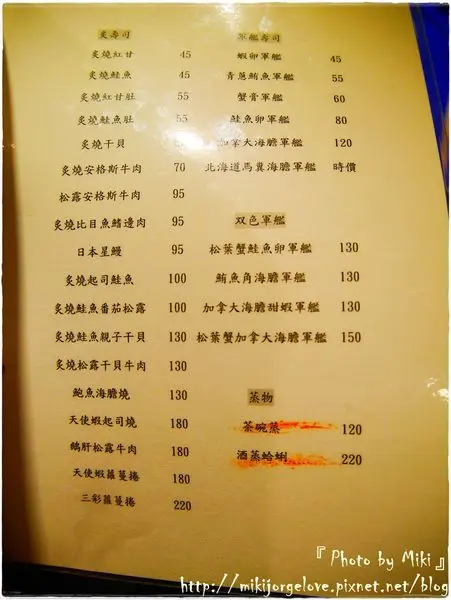 炙壽司
炙燒紅甘 45
炙燒鮭魚 45
炙燒紅甘肚 55
炙燒鮭魚肚 55
炙燒干貝
炙燒安格斯牛肉 70
松露安格斯牛肉 95
炙燒比目魚鰭邊肉 95
日本星鰻 95
炙燒起司鮭魚 100
炙燒鮭魚番茄松露 100
炙燒鮭魚親子干貝 130
炙燒松露干貝牛肉 130
鮑魚海膽燒 130
天使蝦起司燒 180
鵝肝松露牛肉 180
天使蝦蘿蔓捲 180
三彩蘿蔓捲 220
軍艦壽司
蝦卵軍艦 45
青蔥鮪魚軍艦 55
蟹膏軍艦 60
鮭魚卵軍艦 80
加拿大海膽軍艦 120
北海道馬糞海膽軍艦 時價
双色軍艦
松葉蟹鮭魚卵軍艦 130
鮪魚角海膽軍艦 130
加拿大海膽甜蝦軍艦 130
松葉蟹加拿大海膽軍艦 150
蒸物
茶碗蒸 120
酒蒸蛤蜊 220
『Photo by Miki』
http://mikijorgelove.pixnet.net/blog